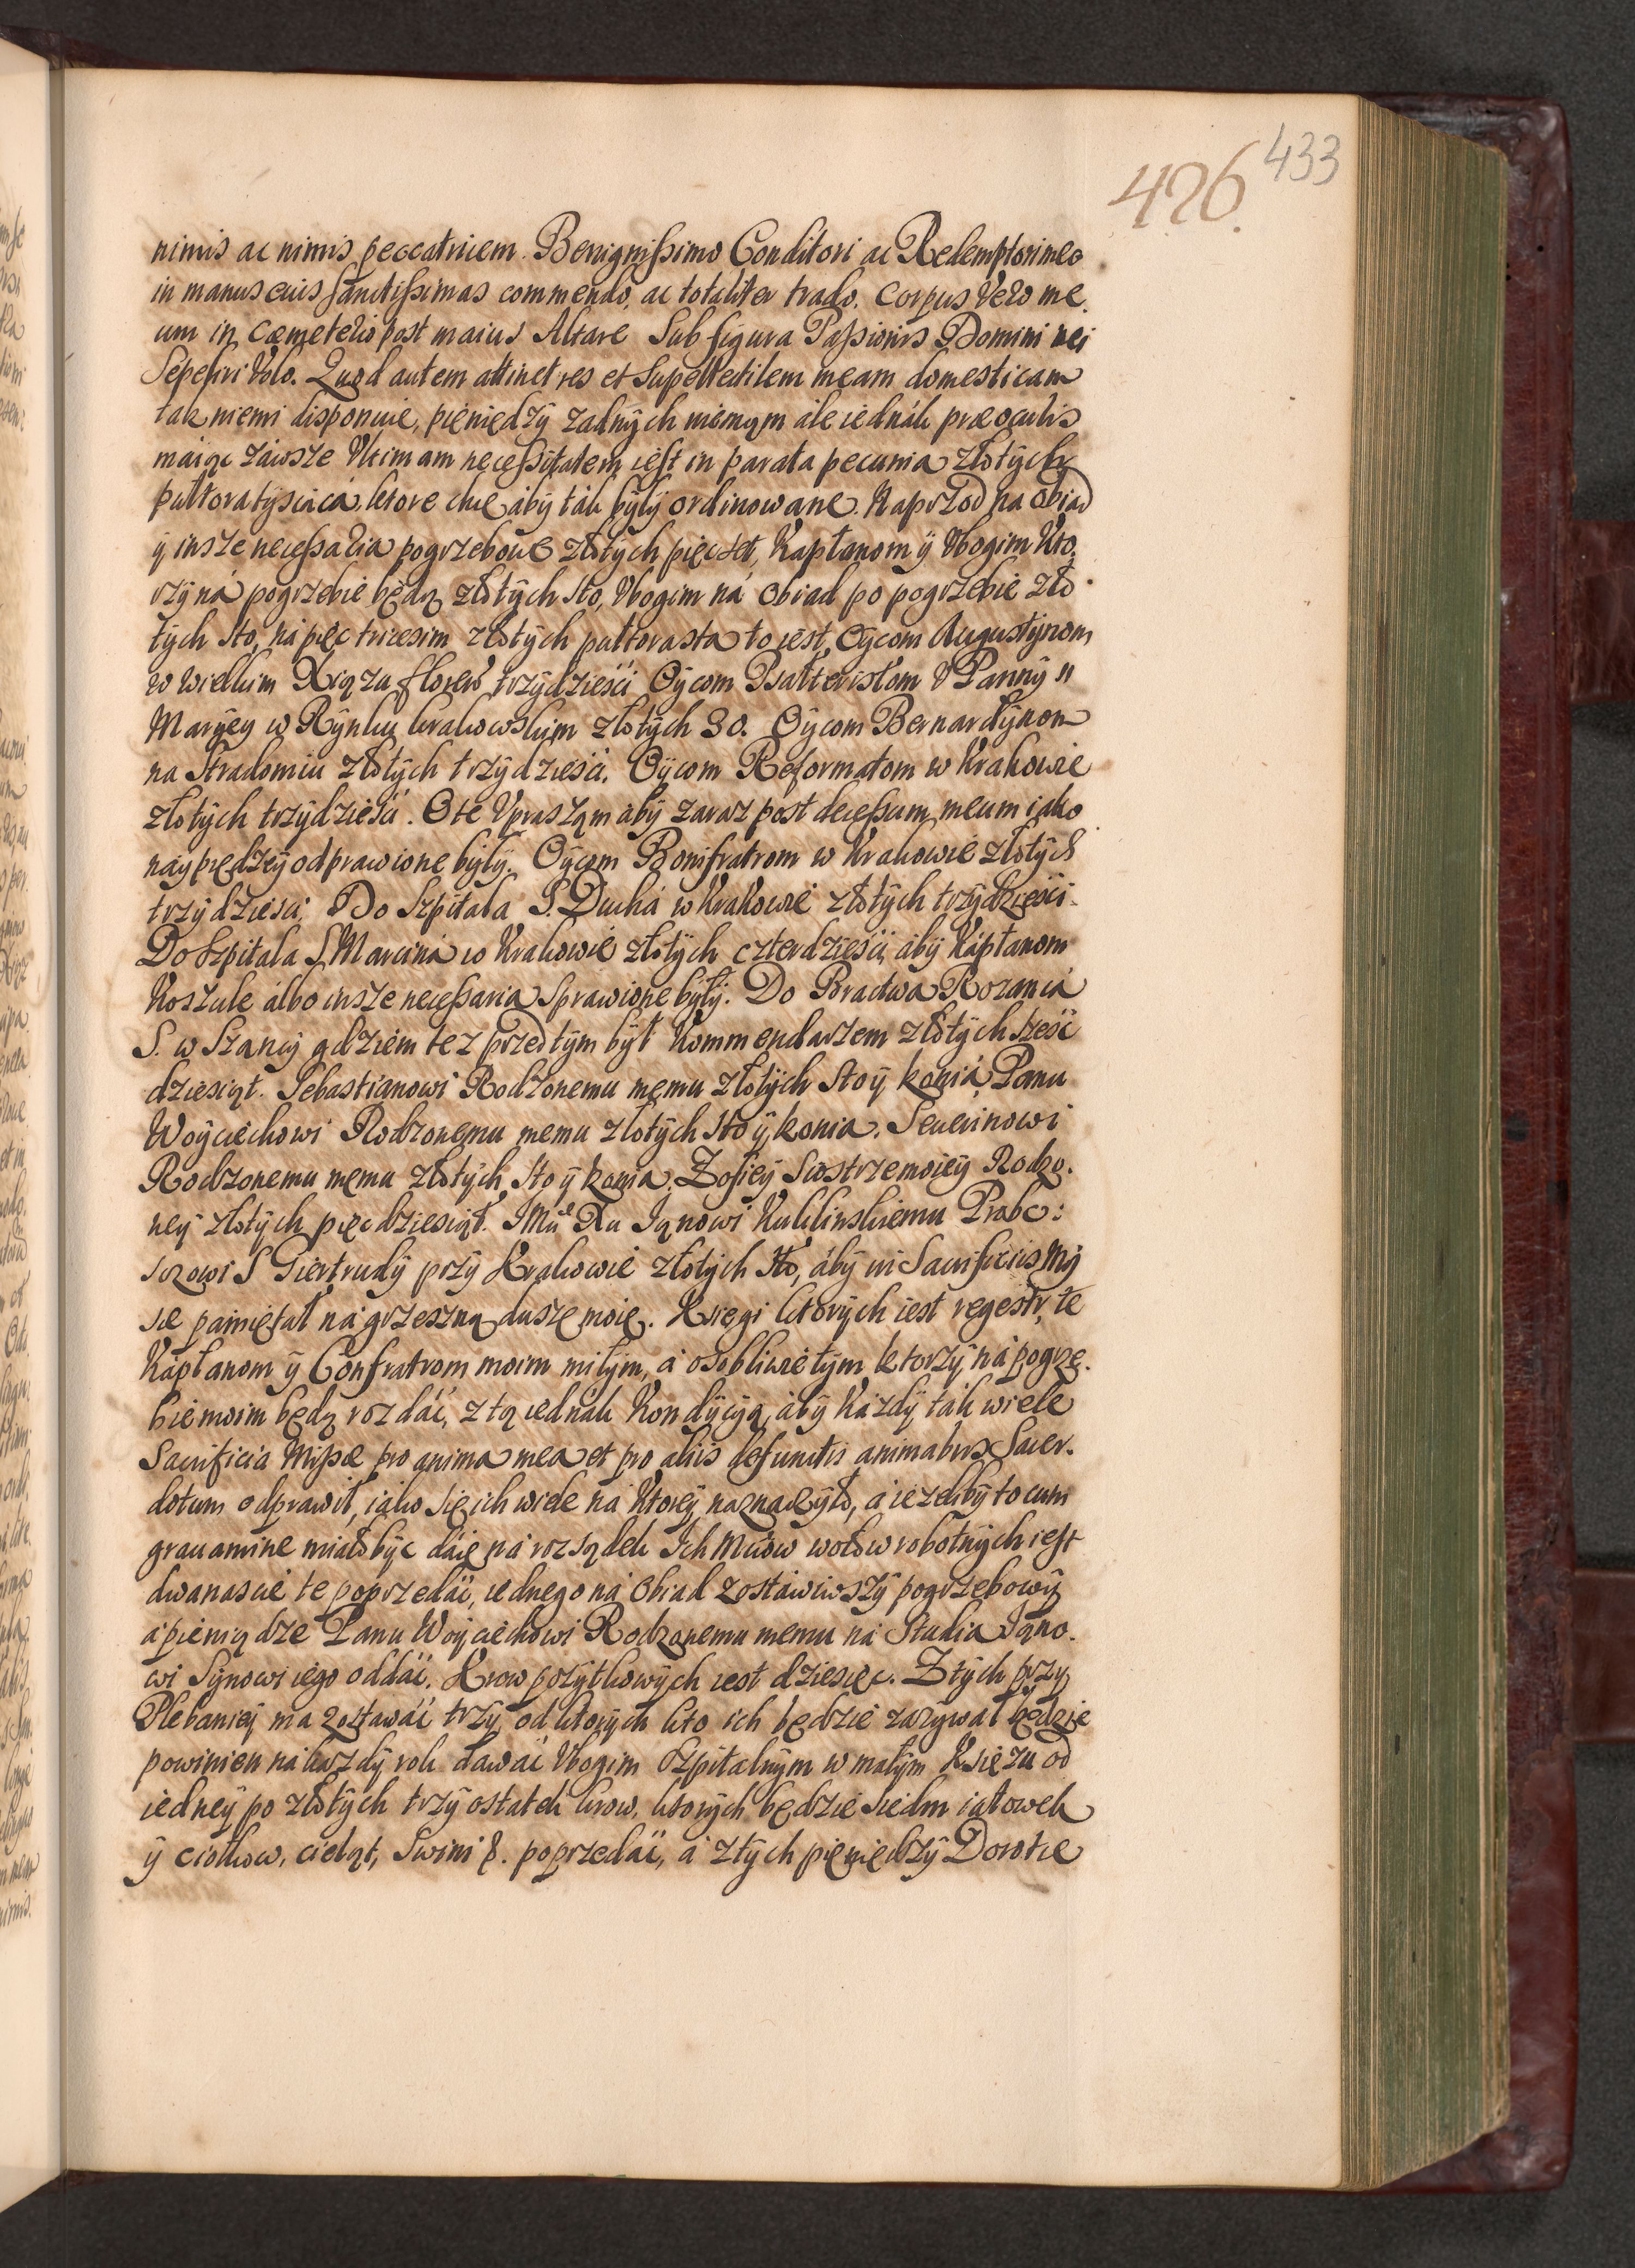 433
426.
nimis ac nimis peccatricem. Benignissimo Conditori ac Redemptori meo
in manus eius sanctissimas commendo, ac totaliter trado. Corpus Vero me.
um in Cæmeterio post maius Altare Sub figura Passionis Domini mei
Sepeliri Volo. Quod autem attinet res et Supellectilem meam domesticam
tak niemi disponuie, pieniędzÿ żadnÿch niemam ále iednák præ oculis
máiąc záwsze Vltimam necessitatem iest in parata pecunia złotÿch
pułtora tÿsiącá, ktore chcę ábÿ ták bÿłÿ ordinowane. Naprzod na obiad
ÿ insze necessaria pogrzebowe złotÿch pięćset, Kapłanom ÿ Vbogim Kto.
rzÿ ná pogrzebie będą złotÿch sto, Vbogim ná obiad po pogrzebie zło
tÿch sto, ná pięć tricesim złotÿch pułtorasta to iest, Oÿcom Augustÿnom
w wielkim Xiążu floren trzÿdzieści Oÿcom Psałteristom V Pannÿ
Marÿeÿ w Rÿnku krakowskim złotÿch 30. Oÿcom Bernardÿnom
na Stradomiu złotÿch trzÿdzieści. Oÿcom Reformatom w Krakowie
złotÿch trzÿdzieści. O te Vpraszam ábÿ zaraz post decessum meum iáko
náÿpredzeÿ odprawione bÿłÿ. Oÿcom Bonifratrom w Krakowie złotÿch
trzÿdzieści; Do Szpitala S. Duchá w Krakowie złotÿch trzÿdzieści.
Do Szpitala S Marciná w Krakowie złotÿch czterdzieści ábÿ Kápłanom
Koszule álbo insze necessaria Sprawione bÿłÿ. Do Bractwa Rozancá
S. w Szancÿ gdziem tez przedtÿm bÿł Kommendarzem złotÿch sześć
dziesiąt. Sebastianowi Rodzonemu memu złotÿch sto ÿ koniá, Panu
Woÿciechowi Rodzonemu memu złotÿch sto ÿ konia. Seuerinowi
Rodzonemu memu złotÿch sto ÿ konia. Zofieÿ Siostrze moieÿ Rodzo.
neÿ złotÿch pięcdziesiąt. JMci Xu Janowi Kuklinskiemu Probo:
szczowi S Giertrudÿ przÿ Krakowie złotÿch sto, ábÿ in Sacrificiis Mÿ
sie pamiętał ná grzeszną duszę moię. Ksiegi ktorÿch iest regestr, te
Kápłanom ÿ Confratrom moim miłÿm, á osobliwie tÿm ktorzÿ ná pogrze.
bie moim będą rozdáć, z tą iednák Kondÿcÿą, ábÿ Káżdÿ ták wiele
Sacrificia Missæ pro anima mea et pro aliis defunctis animabus Sacer.
dotum odprawił, iáko się ich wiele ná Ktoreÿ náznaczÿło, á ieżelibÿ to cum
grauamine miało bÿć dáię ná rozsądek Ich Mciow wołow robotnÿch iest
dwanascie te poprzedáć, iednego ná Obiad zostáwiwszÿ pogrzebowÿ
á pieniądze Panu Woÿciechowi Rodzonemu memu ná Studia Jano.
wi Sÿnowi iego oddáć. Krow pożÿtkowÿch iest dziesięc. Z tÿch przÿ
Plebanieÿ ma zostawáć trzÿ, od ktorÿch kto ich będzie zażÿwał będzie
powinien ná każdÿ rok dawáć Vbogim Szpitalnÿm w małÿm Książu od
iedneÿ po złotÿch trzÿ ostatek krow, ktorÿch będzie siedm iałowek
ÿ ciołkow, cieląt, Swini &. poprzedáć, á z tÿch pieniędzÿ Dorotce